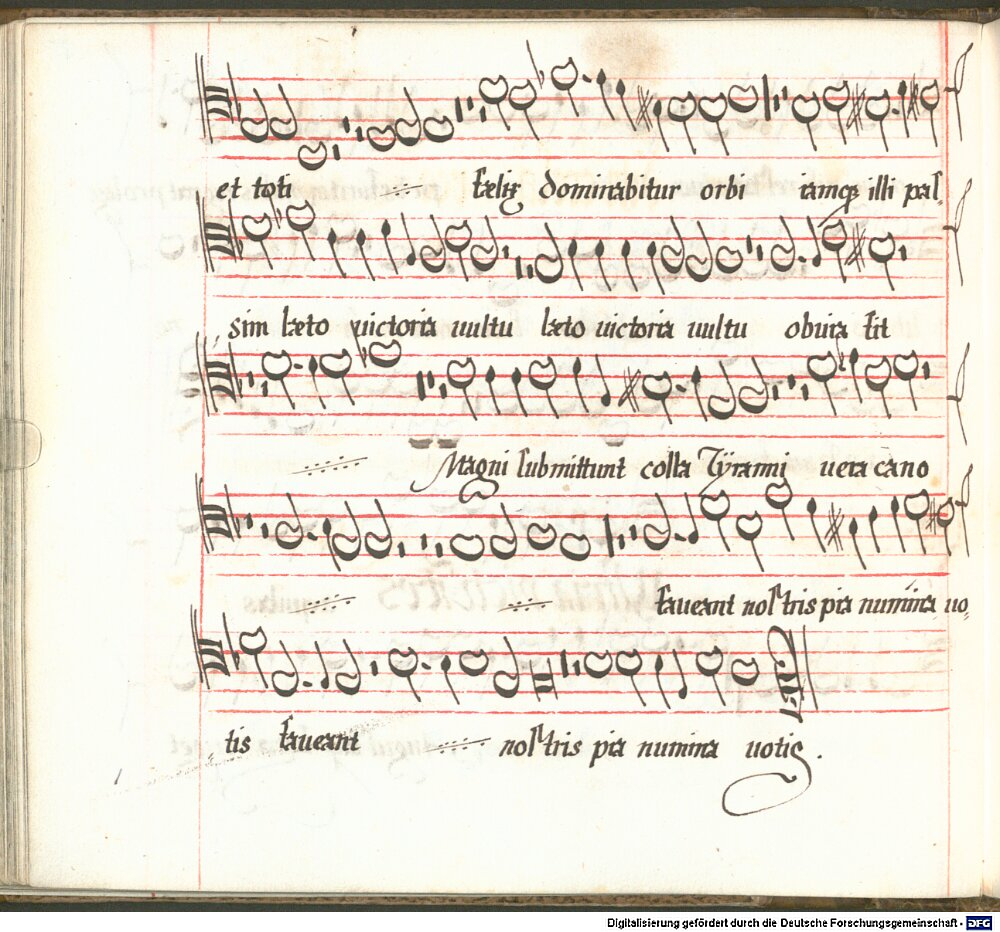 et toti fælix dominabitur orbi iamq illi pal
sim læto victoria vultu læto victoria vultu obvia fit
Magni submittunt colla Tÿranni vera cano
faveant nostris pia numina vo
tis faveant nostris pia numina votis.
Digitalisierung gefördert durch die Deutsche Forschungsgemeinschaft - DFG